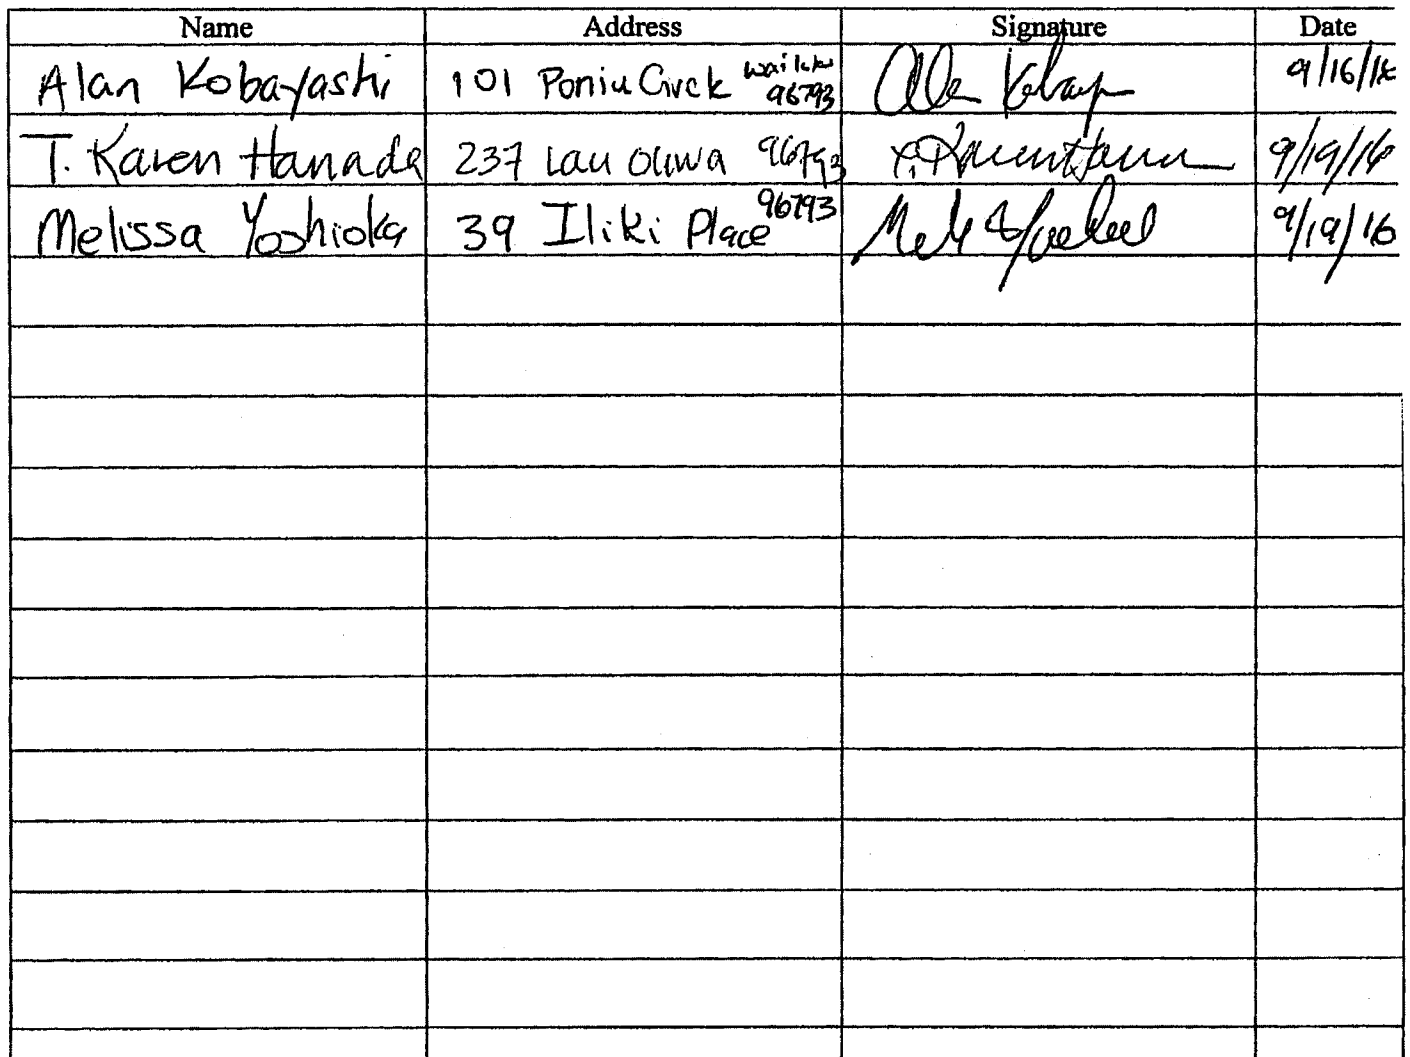 Name Address Signature Date
Alan Kobayashi 101 Poniu Circle Wailuku 96793 9/16/16
T. Karen Hanada 237 Lau 96793 T. Karen Hanada 9/19/16
Melissa Yoshioka 39 Iliki Place 96793 9/19/16